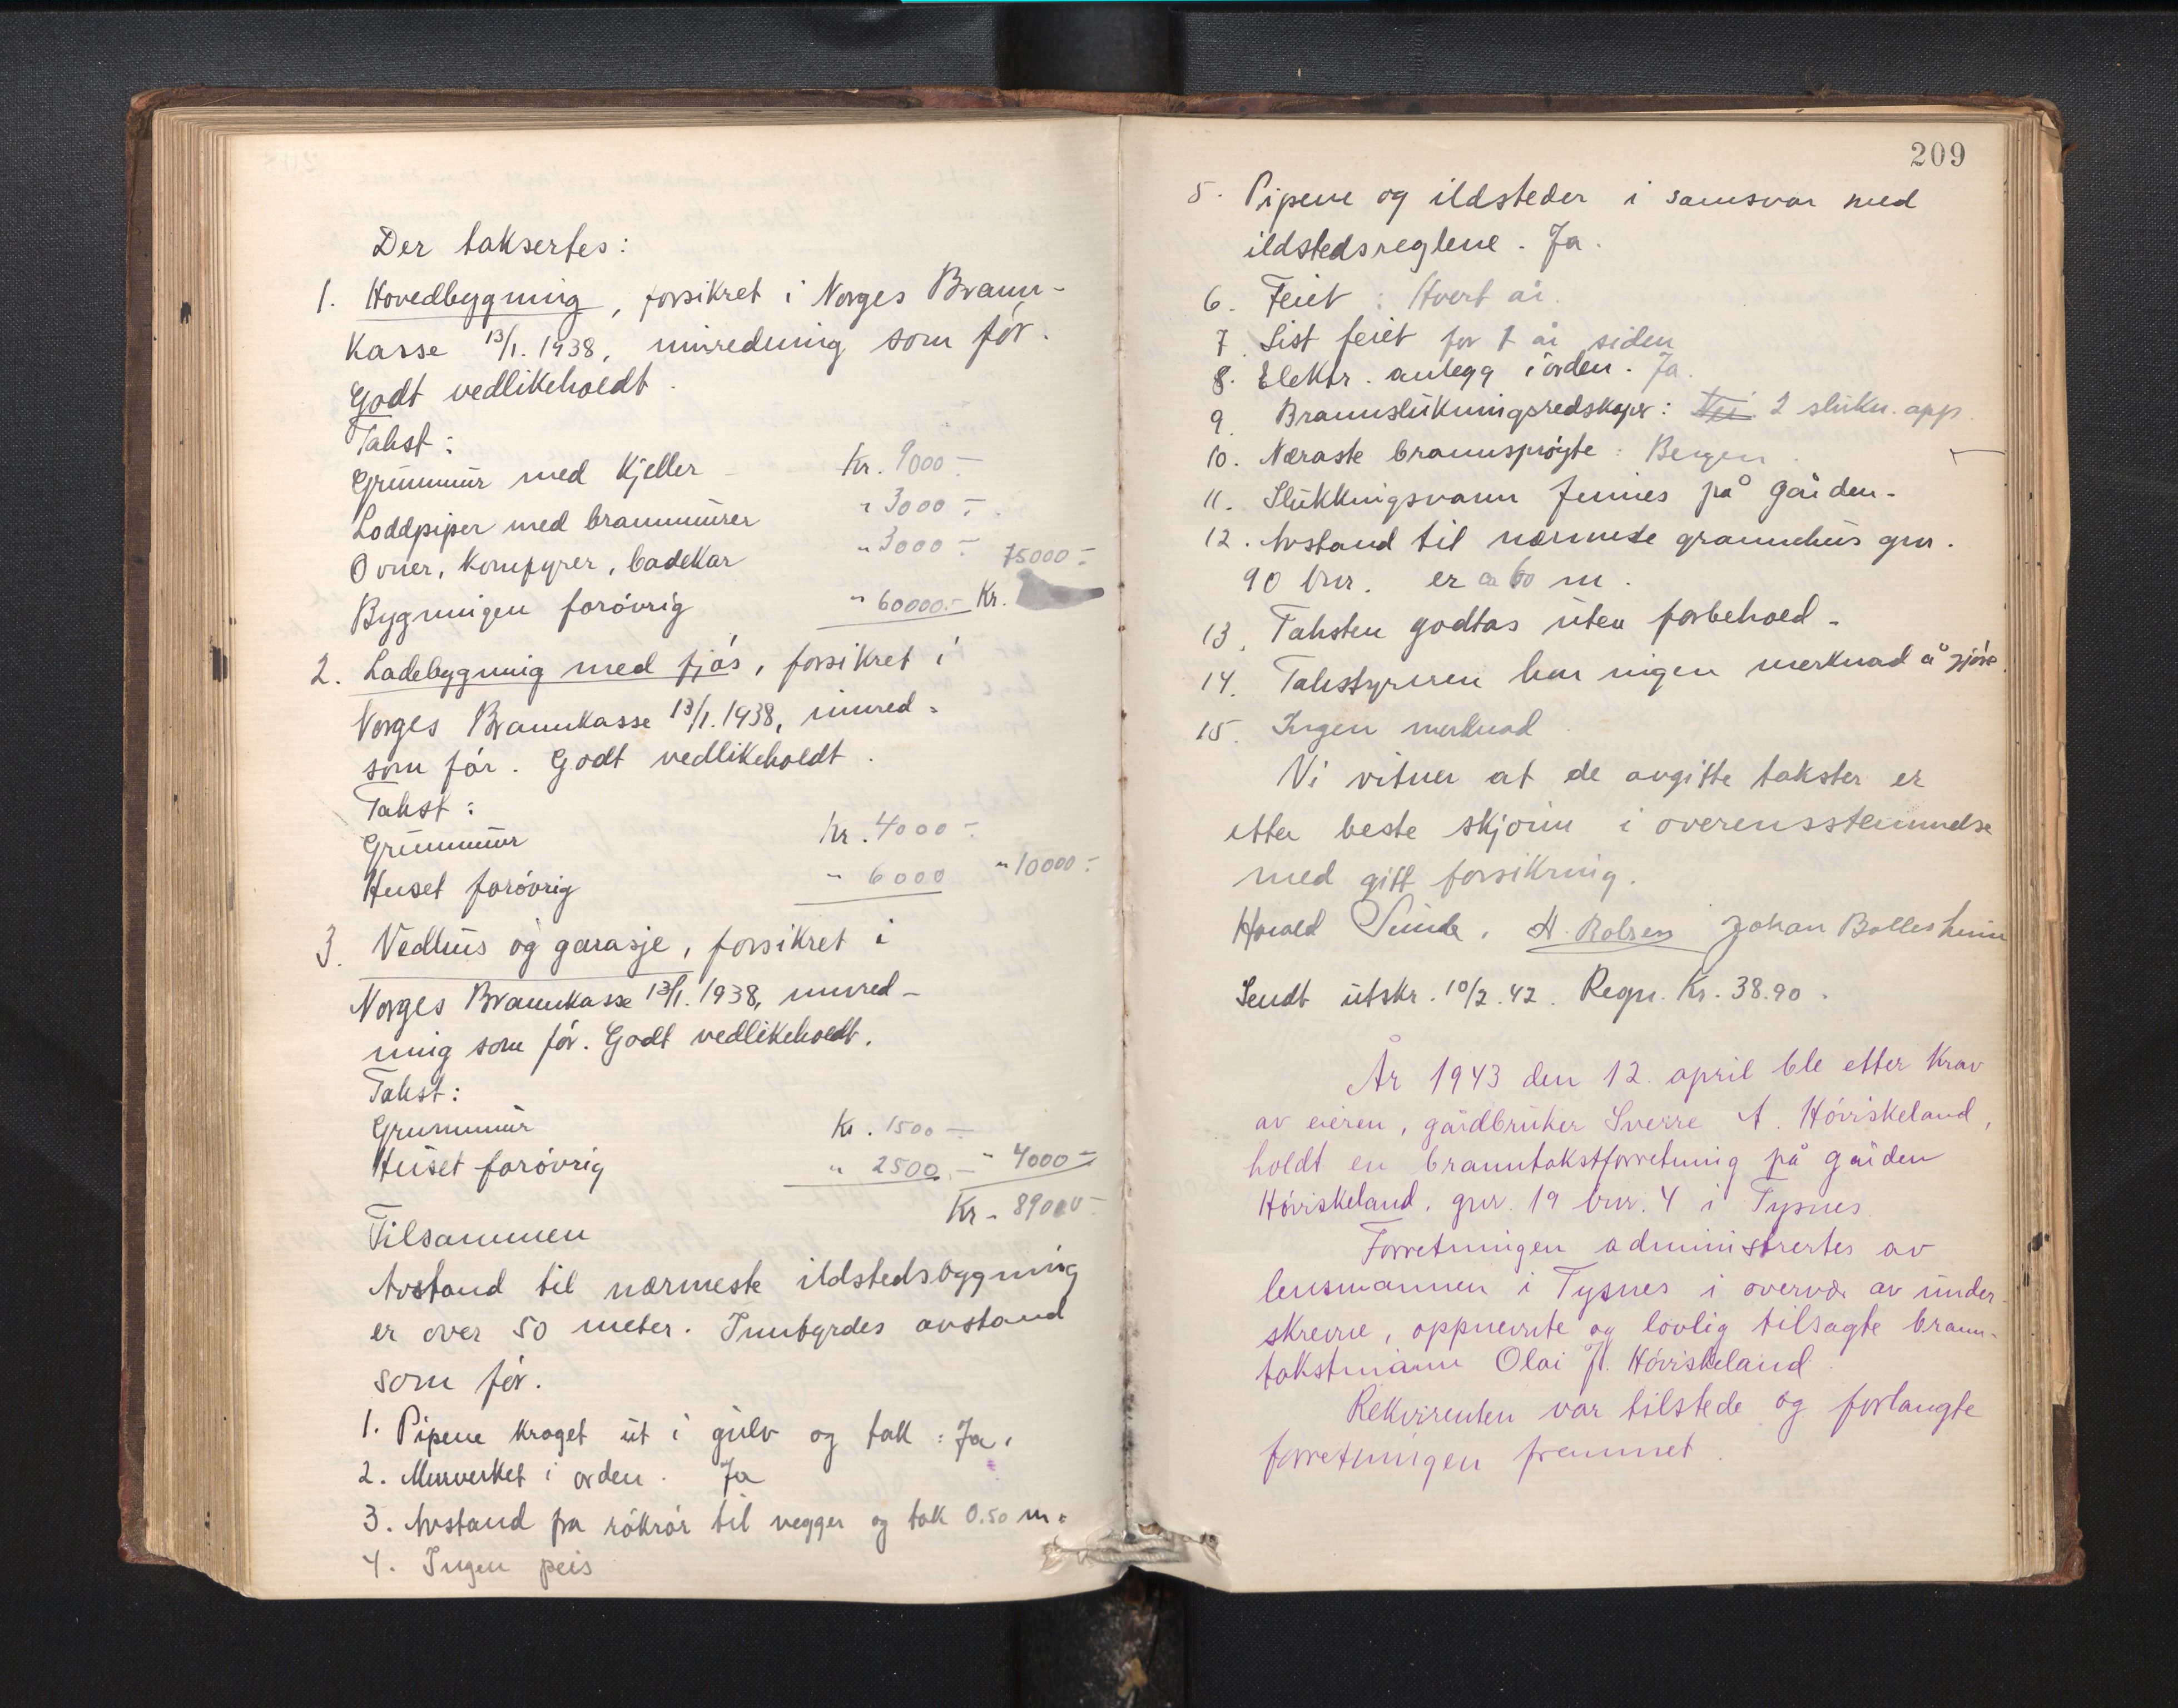 Der taksertes:
1. Hovedbygning, forsikret i Norges Brann-
kasse 13/1. 1938, innredning som før.
Godt vedlikeholdt.
Takst:
Grunnmur med kjeller Kr. 9000.-
Loddpiper med brannmurer " 3000.-
Ovner, komfyrer, badekar " 3000.- 75000.-
Bygningen forøvrig " 60000.- Kr.
2. Ladebygning med fjøs, forsikret i
Norges Brannkasse 13/1. 1938, innred-
som før. Godt vedlikeholdt.
Takst:
Grunnmur Kr. 4000.-
Huset forøvrig " 6000 " 10000.-
3. Vedhus og garasje, forsikret i
Norges Brannkasse 13/1. 1938, innred-
ning som før. Godt vedlikeholdt.
Takst:
Grunnmur Kr. 1500.-
Huset forøvrig " 2500.- " 4000.-
Tilsammen Kr. 89000.-
Avstand til nærmeste ildstedsbygning
er over 50 meter. Innbyrdes avstand
som før.
1. Pipene kraget ut i gulv og tak: Ja.
2. Murverket i orden. Ja
3. Avstand fra røkrør til vegger og tak 0.50 m.
4. Ingen peis
209
5. Pipene og ildsteder i samsvar med
ildstedsreglene. Ja.
6. Feiet: Hvert år.
7. Sist feiet for 1 år siden
8. Elektr. anlegg i orden. Ja.
9. Brannslukningsredskaper: Nei 2 slukn. app.
10. Næraste brannsprøyte: Bergen.
11. Slukkningsvann finnes på gården.
12. Avstand til nærmeste grannehus gnr.
90 bnr. er ca 60 m.
13. Taksten godtas uten forbehold.
14. Takstyreren har ingen merknad å gjøre.
15. Ingen merknad
Vi vitner at de avgitte takster er
etter beste skjønn i overensstemmelse
med gitt forsikring.
Harald Sunde. A. Rolsen Johan Bollesheim
Sendt utskr. 10/2. 42. Regn. Kr. 38.90.
År 1943 den 12. april ble etter krav
av eieren, gårdbruker Sverre A. Høviskeland,
holdt en branntakstforretning på gården
Høviskeland, gnr. 19 bnr. 4 i Tysnes.
Forretningen administrertes av
lensmannen i Tysnes i overvær av under-
skrevne, oppnevnte og lovlig tilsagte brann-
takstmann Olai J. Høviskeland.
Rekvirenten var tilstede og forlangte
forretningen fremmet.